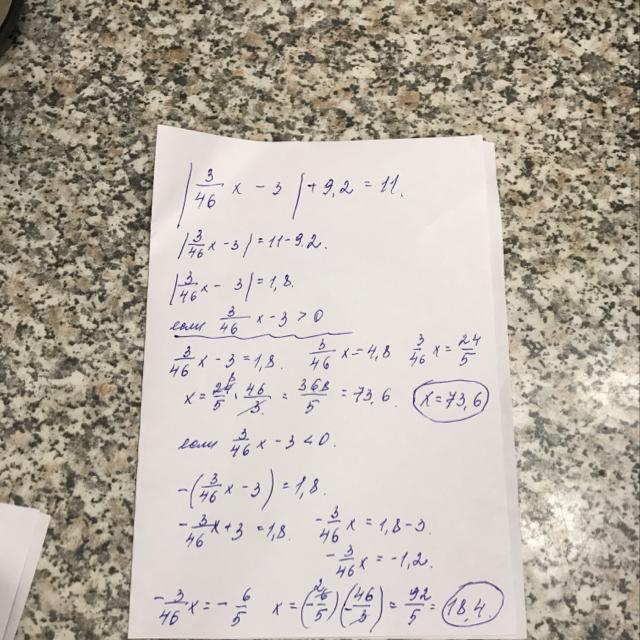 |3/46 x - 3| + 9,2 = 11.
|3/46 x - 3| = 11 - 9,2.
|3/46 x - 3| = 1,8.
если 3/46 x - 3 > 0
3/46 x - 3 = 1,8. 3/46 x = 4,8 3/46 x = 24/5
x = 24/5 · 46/3 = 368/5 = 73,6. x = 73,6
если 3/46 x - 3 < 0.
-(3/46 x - 3) = 1,8.
-3/46 x + 3 = 1,8. -3/46 x = 1,8 - 3.
-3/46 x = -1,2.
-3/46 x = -6/5 x = (-6/5)(-46/3) = 92/5 = 18,4.